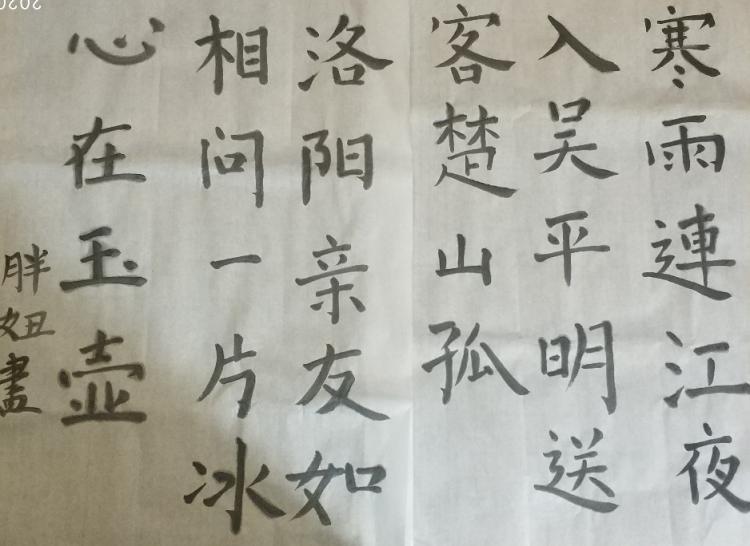 寒雨連江夜
入吴平明送
客楚山孤
洛阳亲友如
相问一片冰
心在玉壶
胖妞畫
2020